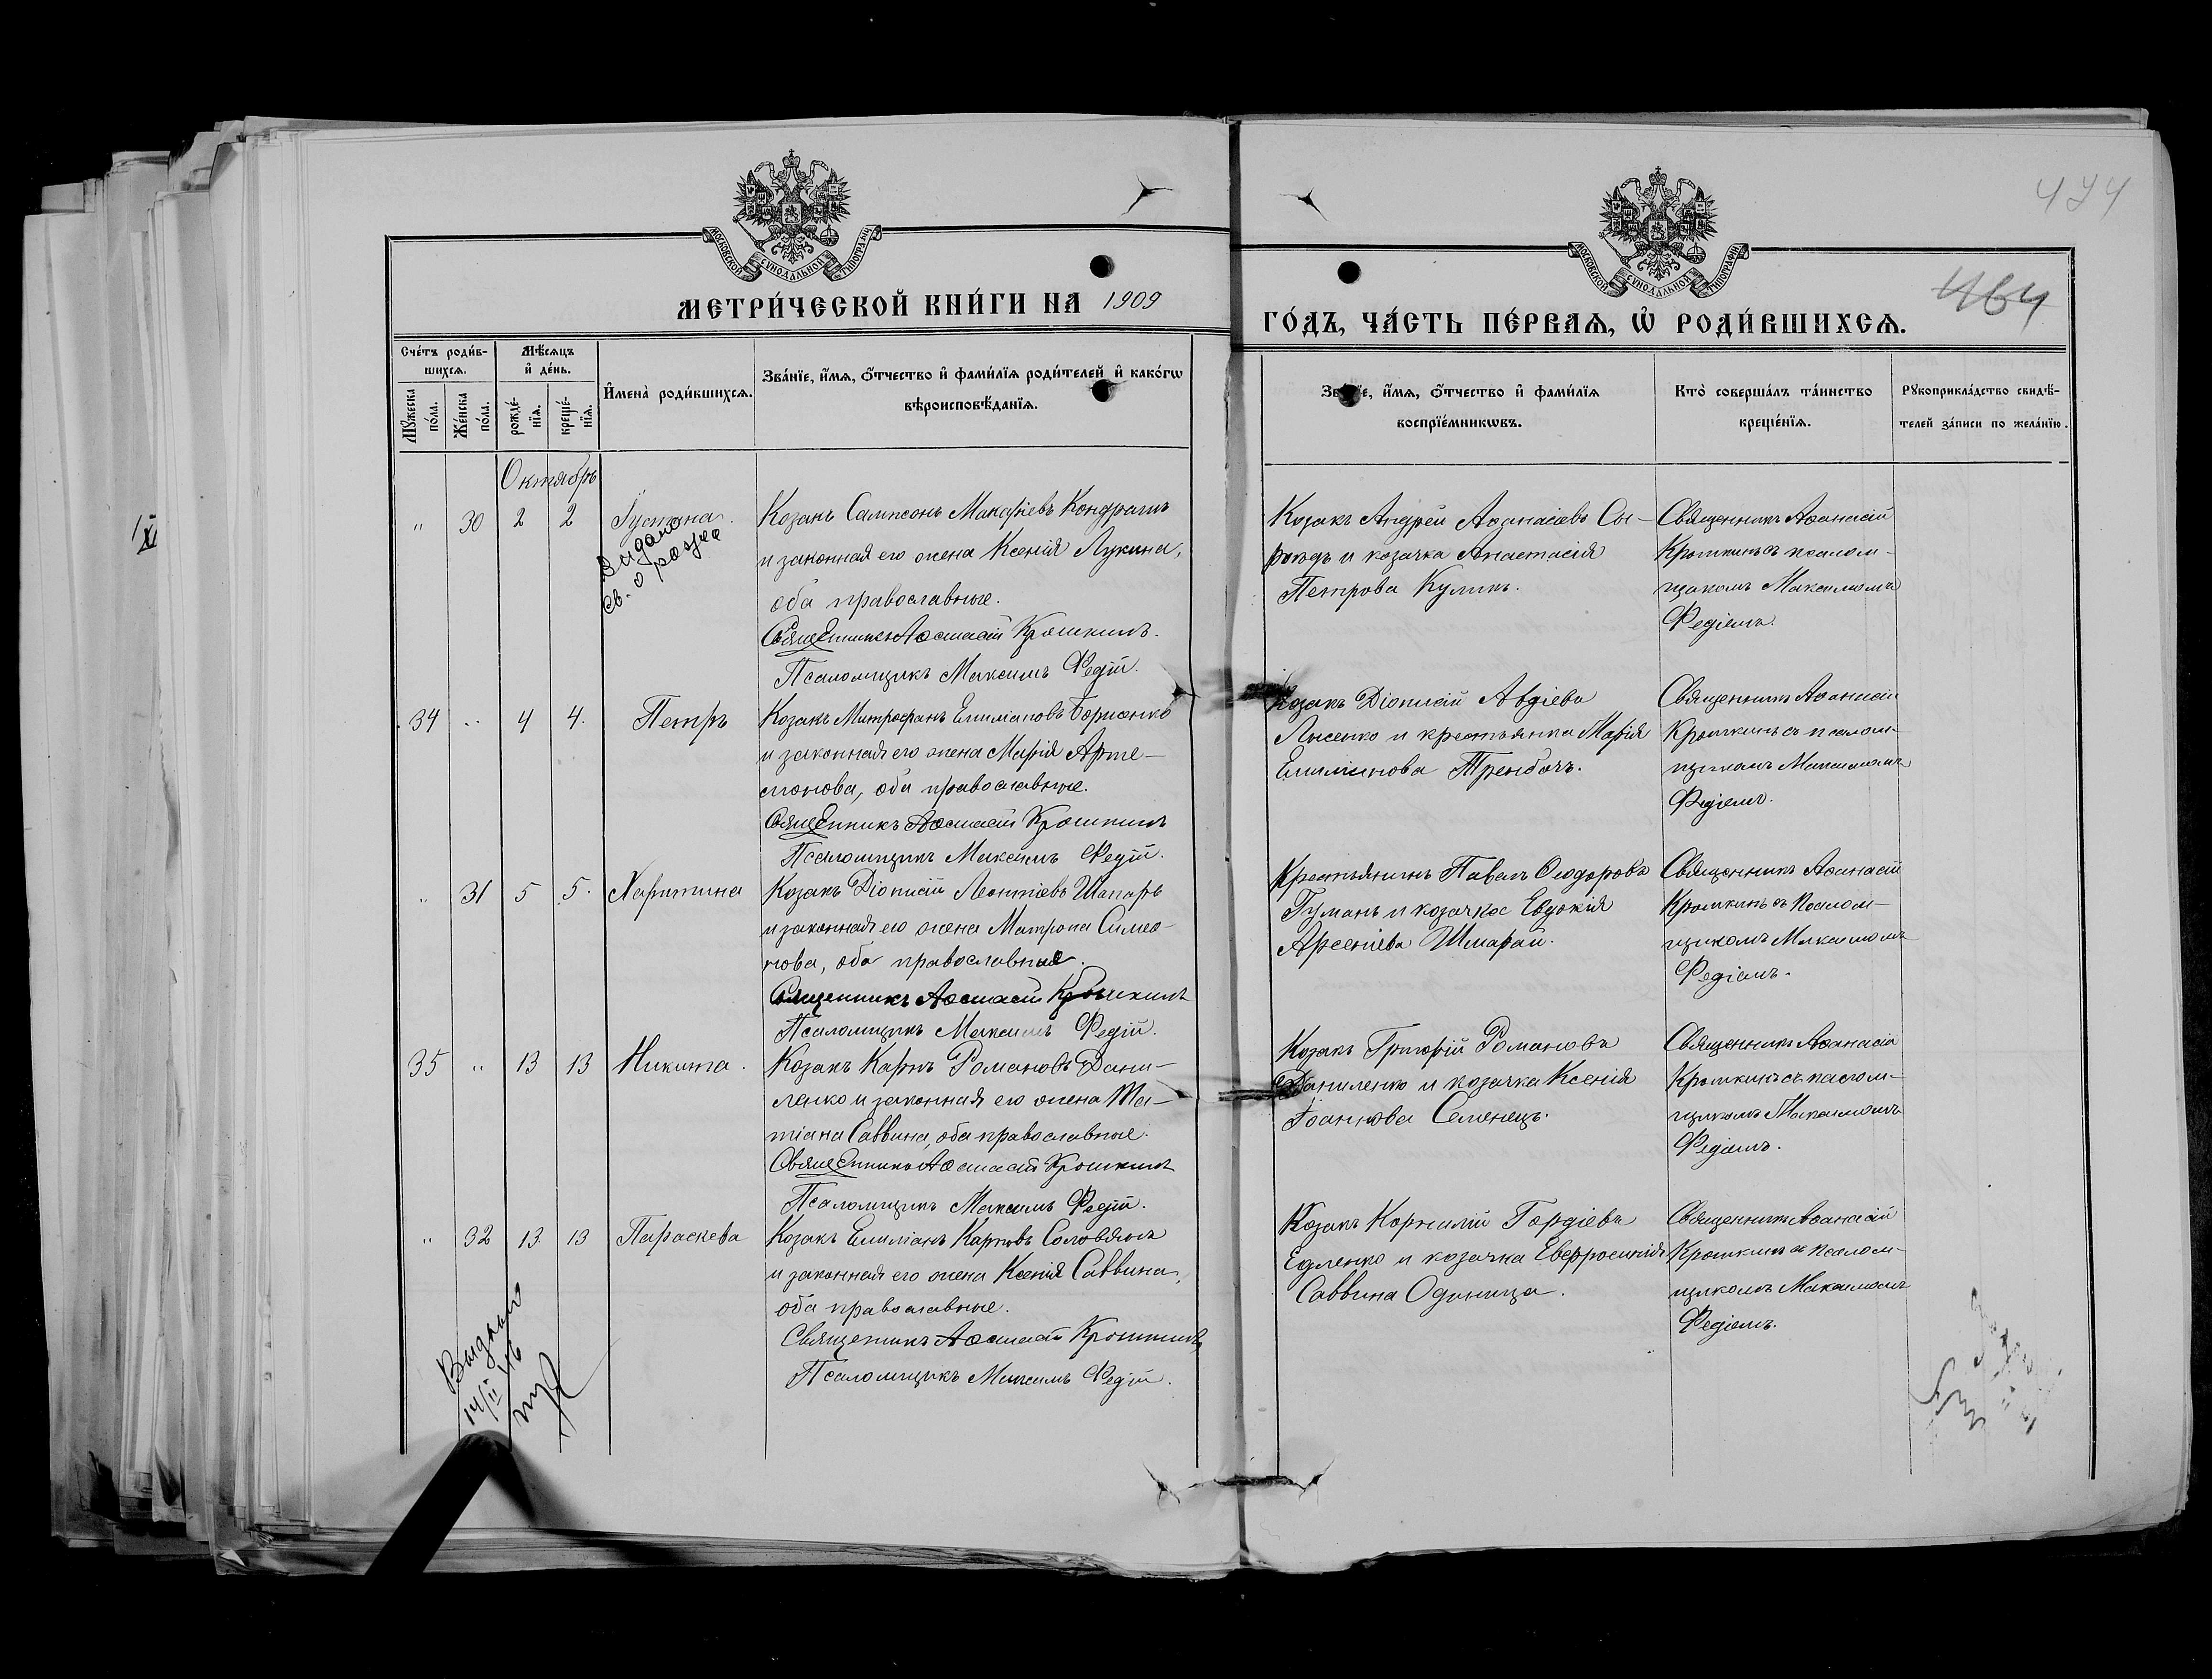 474
464
МОСКОВСКОЙ СѴНОДАЛЬНОЙ ТИПОГРАФІИ
МОСКОВСКОЙ СѴНОДАЛЬНОЙ ТИПОГРАФІИ
МЕТРИ́ЧЕСКОЙ КНИ́ГИ НА 1909 ГО́ДЪ, ЧА́СТЬ ПЕ́РВАѦ, Ѡ҆ РОДИ́ВШИХСѦ.
Сче́тъ роди́в-
шихсѧ.
Мѣ́сѧцъ
и҆ де́нь.
Мꙋ́жеска
по́ла.
Же́нска
по́ла.
рожде́-
нїѧ.
креще́-
нїѧ.
И҆мена̀ роди́вшихсѧ.
Зва́нїе, и҆́мѧ, ѻ҆́тчество и҆ фами́лїѧ роди́телей и҆ како́гѡ
вѣроисповѣ́данїѧ.
Зва́нїе, и҆́мѧ, ѻ҆́тчество и҆ фами́лїѧ
воспрїе́мникѡвъ.
Кто̀ соверша́лъ та́инство
креще́нїѧ.
Рꙋкоприкла́дство свидѣ́-
телей за́писи по жела́нїю.
Октябрь
" 30 2 2 Іустина.
Козакъ Сампсонъ Макаріевъ Кондратъ
и законная его жена Ксенія Лукина,
оба православные.
Священникъ Аѳанасій Крошкинъ.
Псаломщикъ Максимъ Федій.
Козакъ Андрей Аѳанасіевъ Сы-
роидъ и козачка Анастасія
Петрова Куликъ.
Священникъ Аѳанасій
Крошкинъ съ псалом-
щикомъ Максимомъ
Федіемъ.
34 " 4 4. Петръ
Козакъ Митрофанъ Емиліановъ Борисенко
и законная его жена Марія Арте-
монова, оба православные.
Священникъ Аѳанасій Крошкинъ
Псаломщикъ Максимъ Федій.
Козакъ Діонисій Авдіевъ
Лысенко и крестьянка Марія
Емиліанова Трембачъ.
Священникъ Аѳанасій
Крошкинъ съ псалом-
щикомъ Максимомъ
Федіемъ.
" 31 5 5. Харитина
Козакъ Діонисій Леонтіевъ Шапаръ
и законная его жена Матрона Симео-
нова, оба православные.
Священникъ Аѳанасій Крошкинъ
Псаломщикъ Максимъ Федій.
Крестьянинъ Павелъ Ѳеодоровъ
Гуманъ и козачка Евдокія
Арсеніева Шмарай.
Священникъ Аѳанасій
Крошкинъ съ псалом-
щикомъ Максимомъ
Федіемъ.
35 " 13 13 Никита.
Козакъ Карпъ Романовъ Дани-
ленко и законная его жена Та-
тіана Саввина, оба православные.
Священникъ Аѳанасій Крошкинъ
Псаломщикъ Максимъ Федій.
Козакъ Григорій Романовъ
Даниленко и козачка Ксенія
Іоаннова Семенецъ.
Священникъ Аѳанасій
Крошкинъ съ псалом-
щикомъ Максимомъ
Федіемъ.
" 32 13. 13 Параскева
Козакъ Емиліанъ Карповъ Соловянъ
и законная его жена Ксенія Саввина,
оба православные.
Священникъ Аѳанасій Крошкинъ
Псаломщикъ Максимъ Федій.
Козакъ Корнилій Гордіевъ
Едленко и козачка Евфросинія
Саввина Одиница.
Священникъ Аѳанасій
Крошкинъ съ псалом-
щикомъ Максимомъ
Федіемъ.
Видано
Св. о рожд
Выдано
14/II 46